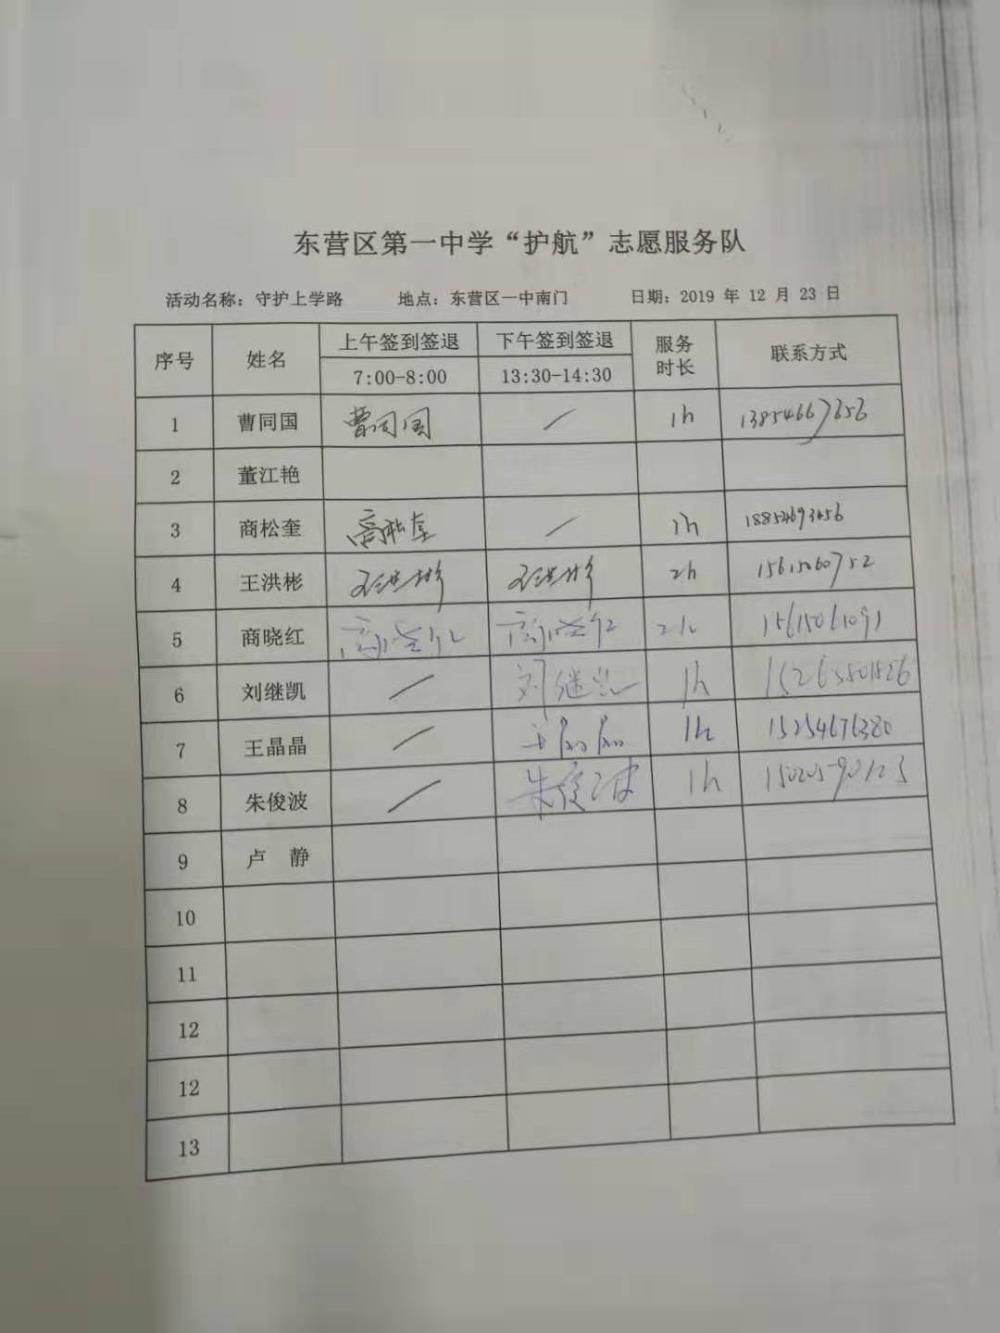 东营区第一中学“护航”志愿服务队
活动名称：守护上学路 地点：东营区一中南门 日期：2019 年 12 月 23 日
序号 姓名 上午签到签退 下午签到签退 服务时长 联系方式
7:00-8:00 13:30-14:30
1 曹同国 曹同国 / 1h 13854667656
2 董江艳
3 商松奎 商松奎 / 1h
4 王洪彬 王洪彬 王洪彬 2h 15615060752
5 商晓红 商晓红 商晓红 2h 15615061091
6 刘继凯 / 刘继凯 1h 15263501526
7 王晶晶 / 王晶晶 1h 15254676380
8 朱俊波 / 朱俊波 1h
9 卢 静
10
11
12
12
13